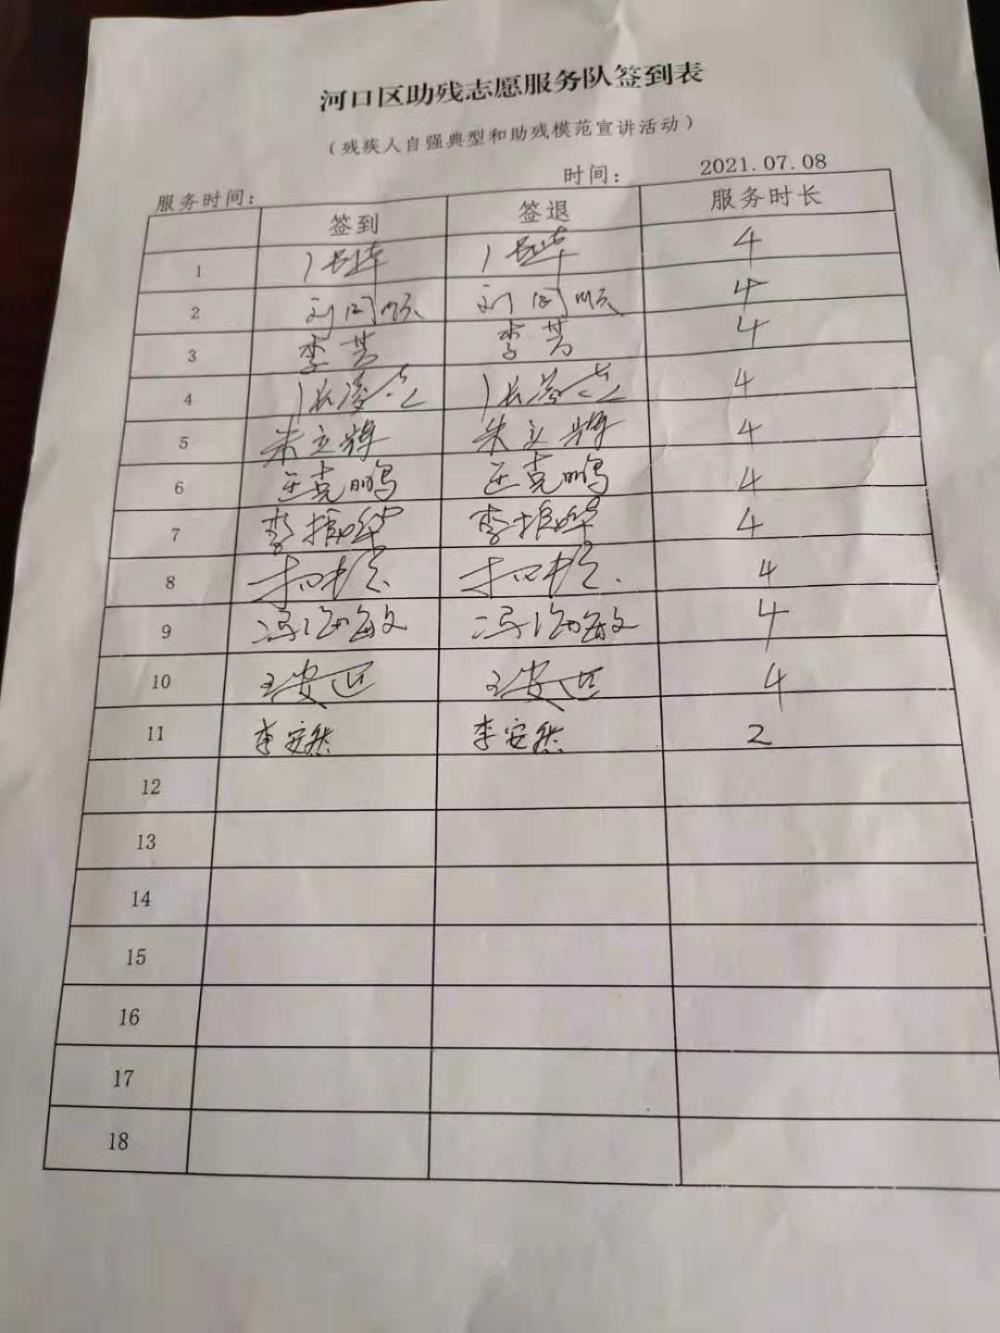 河口区助残志愿服务队签到表
（残疾人自强典型和助残模范宣讲活动）
服务时间： 时间： 2021.07.08
签到 签退 服务时长
1 4
2 刘同顺 刘同顺 4
3 李芳 李芳 4
4 4
5 朱立辉 朱立辉 4
6 王克鹏 王克鹏 4
7 李振华 李振华 4
8 4
9 冯海敏 冯海敏 4
10 4
11 李安然 李安然 2
12
13
14
15
16
17
18